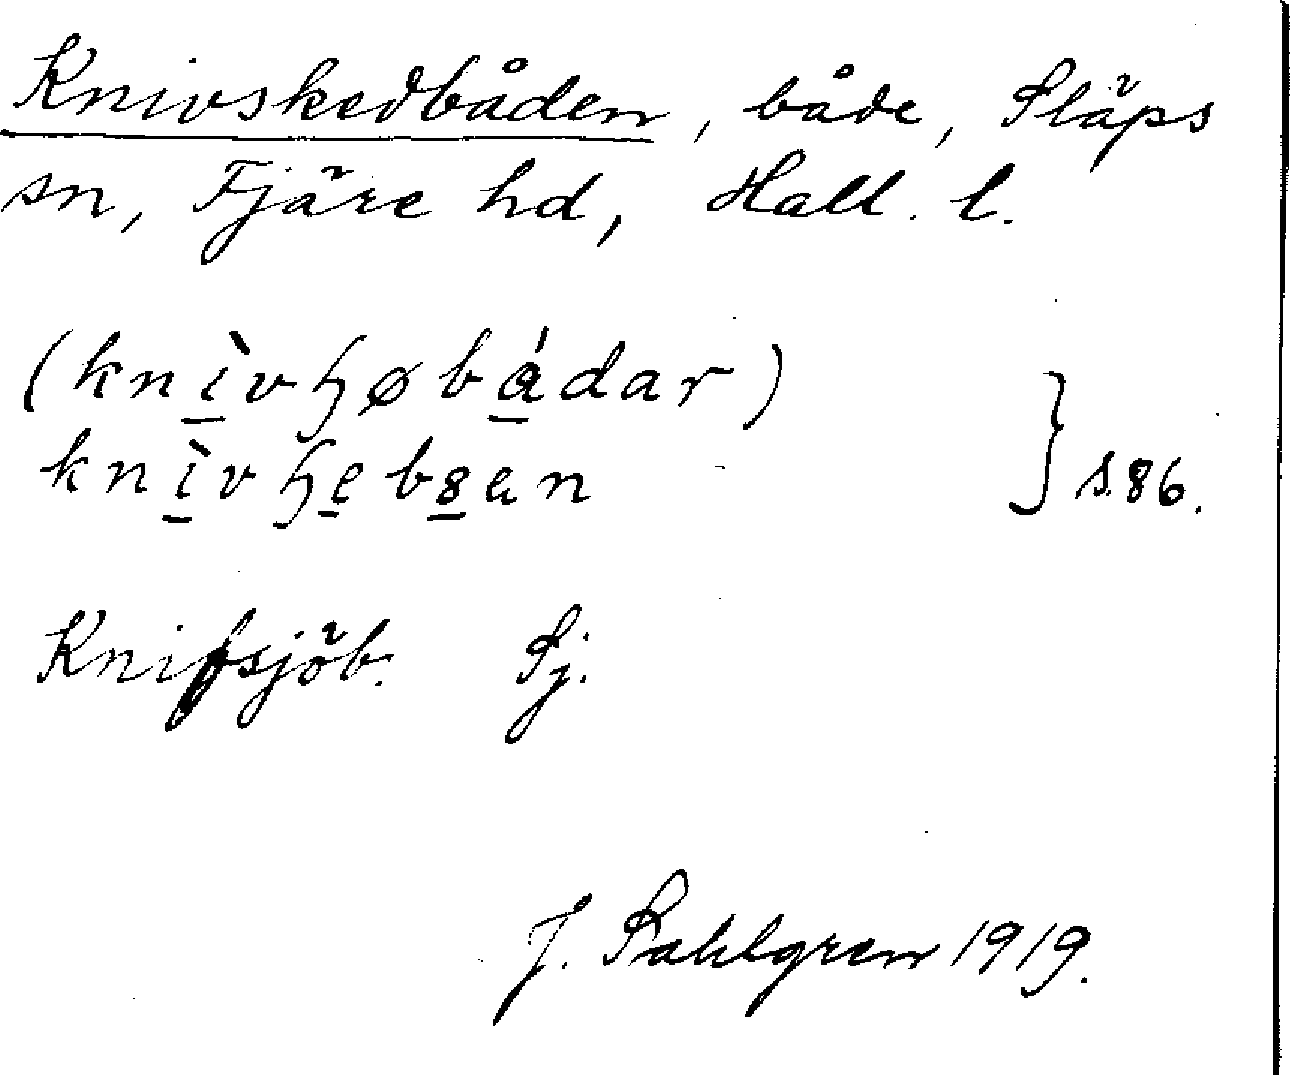 Knivskedbåden, både, Släps
sn, Fjäre hd, Hall. l.
(knìvɧøbádar)
knìvɧeb8en } s. 86.
Knifsjöb. Sj.
J. Sahlgren 1919.